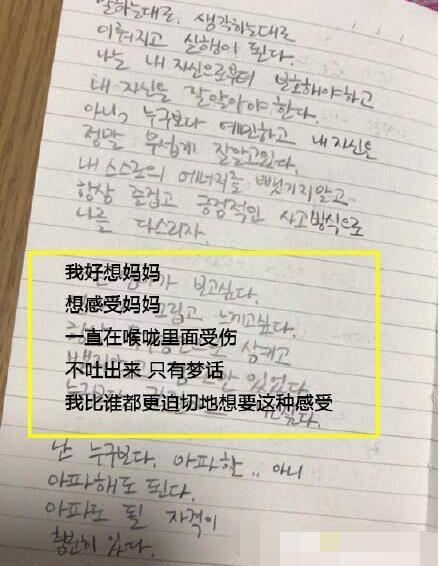 말하는대로. 생각하는대로
이뤄지고 실행이 된다.
나는 내 자신으로부터 보호해야하고
내 자신을 잘알아야 한다.
아니, 누구보다 예민하고 내 자신을
정말 무섭게 잘알고있다.
내 스스로의 에너지를 뺏기지말고..
항상 즐겁고 긍정적인 사고방식으로
나를 다스리자.
가 보고싶다.
我好想妈妈
그립고 느끼고싶다.
想感受妈妈
삼키고
一直在喉咙里面受伤
不吐出来 只有梦话
我比谁都更迫切地想要这种感受
난 누구보다. 아파한.. 아니
아파해도 된다.
아파도 될 자격이
충분히 있다.